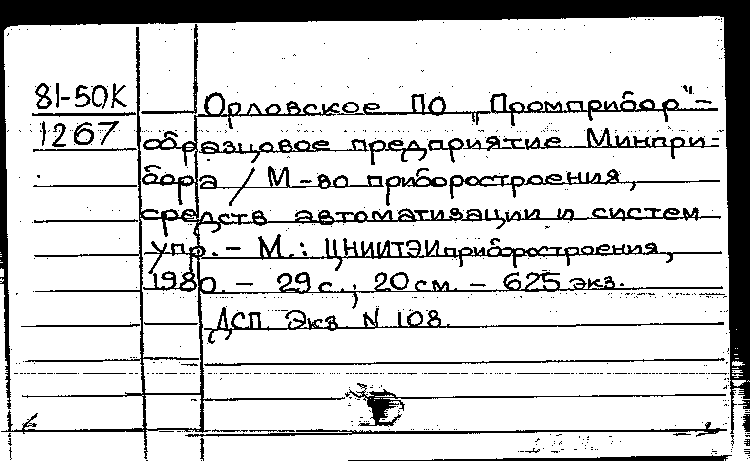 81-50К
1267
Орловское ПО „Промприбор"-
образцовое предприятие Минпри-
бора / М-во приборостроения,
средств автоматизации и систем
упр. - М.: ЦНИИТЭИприборостроения,
1980. - 29 с.; 20 см. - 625 экз.
ДСП. Экз. N 108.